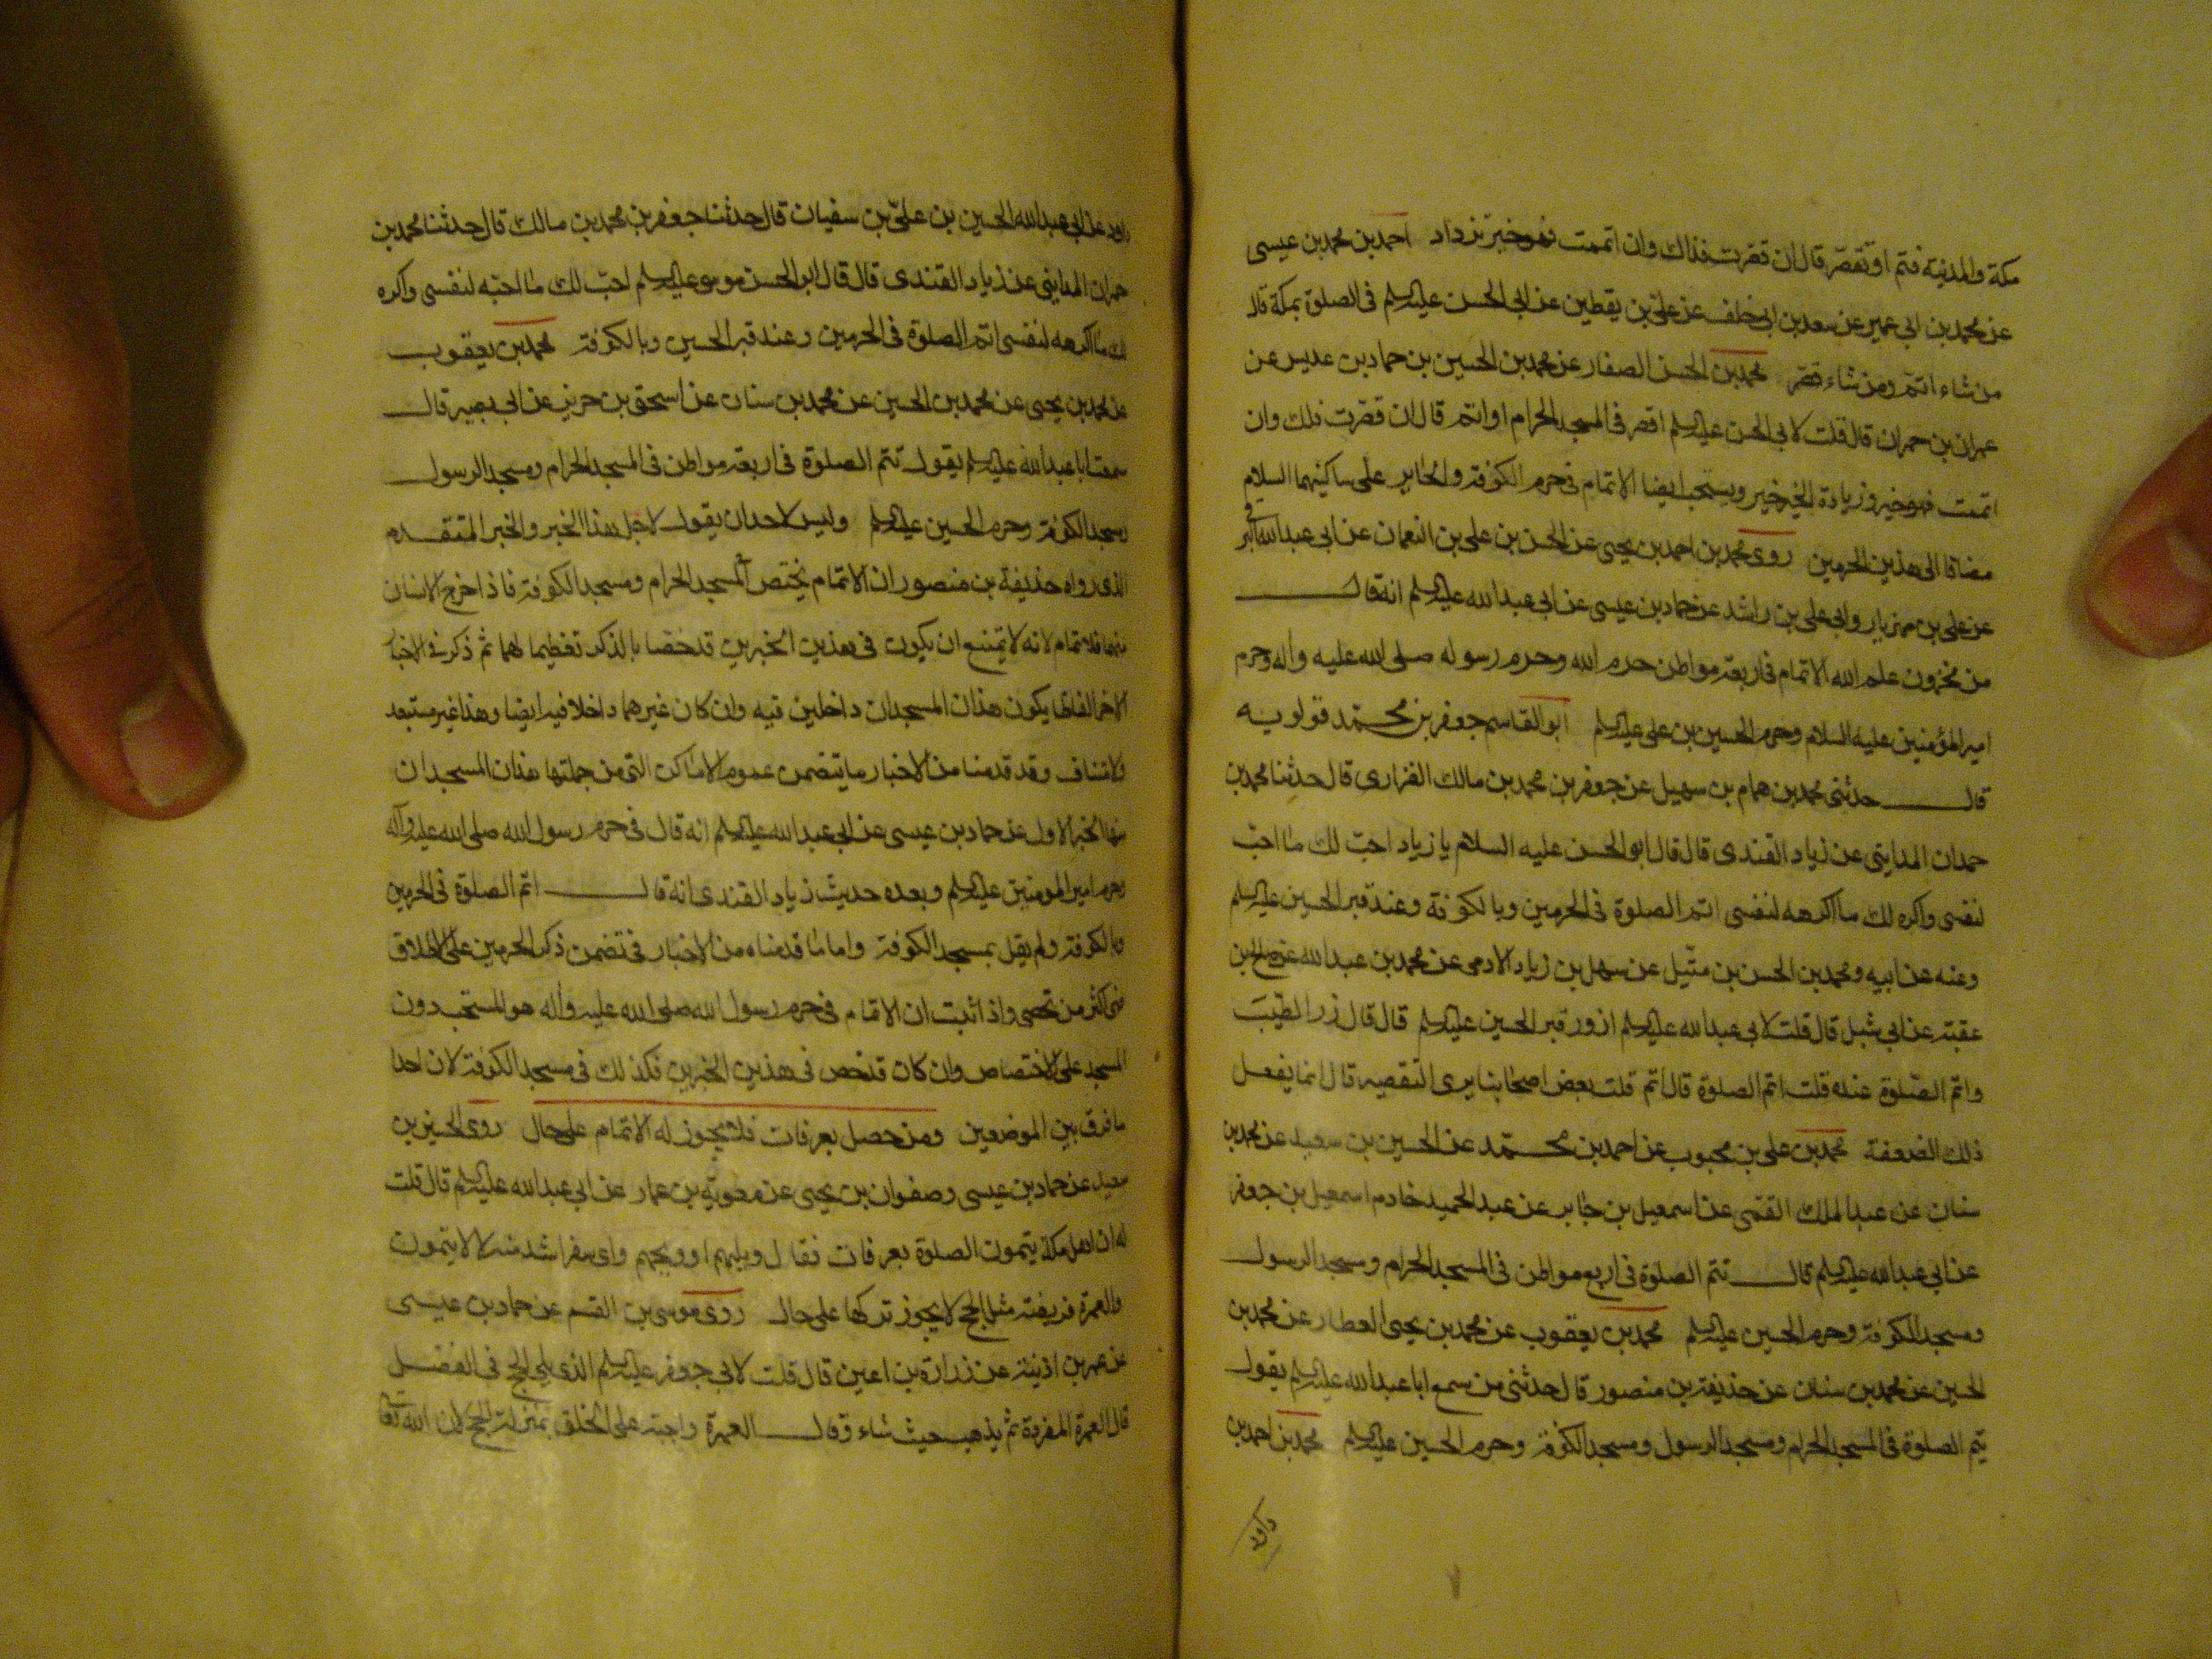 مكة والمدينة فتم او تقصر قال ان قصرت فذاك وان اتممت فهو خير تزداد احمد بن محمد بن عيسى
عن محمد بن ابى عمير عن سعد بن ابى خلف عن على بن يقطين عن ابى الحسن عليه السلم فى الصلوة بمكة قال
من شاء اتم ومن شاء قصر محمد بن الحسن الصفار عن محمد بن الحسين بن حماد بن عديس عن
عمران بن حمران قال قلت لابى الحسن عليه السلم اقصر فى المسجد الحرام او اتم قال ان قصرت فلك وان
اتممت فهو خير وزيادة الخير خير ويستحب ايضا الاتمام فى حرم الكوفة والحاير على ساكنيهما السلام
مضافا الى هذين الحرمين روى محمد بن احمد بن يحيى عن الحسن بن على بن النعمان عن ابى عبد الله البرقى
عن على بن مهزيار وابى على بن راشد عن حماد بن عيسى عن ابى عبد الله عليه السلم انه قال
من مخزون علم الله الاتمام فى اربعة مواطن حرم الله وحرم رسوله صلى الله عليه واله وحرم
امير المؤمنين عليه السلام وحرم الحسين بن على عليه السلم ابو القاسم جعفر بن محمد قولويه
قال حدثنى محمد بن همام بن سهيل عن جعفر بن محمد بن مالك الفزارى قال حدثنا محمد بن
حمدان المداينى عن زياد القندى قال قال ابو الحسن عليه السلام يا زياد احب لك ما احب
لنفسى واكره لك ما اكرهه لنفسى اتم الصلوة فى الحرمين وبالكوفة وعند قبر الحسين عليه السلم
وعنه عن ابيه ومحمد بن الحسن بن متيل عن سهل بن زياد الادمى عن محمد بن عبد الله عن صالح بن
عقبة عن ابى شبل قال قلت لابى عبد الله عليه السلم ازور قبر الحسين عليه السلم قال قال زر الطيب
واتم الصلوة عنده قلت اتم الصلوة قال اتم قلت بعض اصحابنا يرى التقصير قال انما يفعل
ذلك الضعفة محمد بن على بن محبوب عن احمد بن محمد عن الحسين بن سعيد عن محمد بن
سنان عن عبد الملك القمى عن اسمعيل بن جابر عن عبد الحميد خادم اسمعيل بن جعفر
عن ابى عبد الله عليه السلم قال تتم الصلوة فى اربع مواطن فى المسجد الحرام ومسجد الرسول
ومسجد الكوفة وحرم الحسين عليه السلم محمد بن يعقوب عن محمد بن يحيى العطار عن محمد بن
الحسين عن محمد بن سنان عن حذيفة بن منصور قال حدثنى من سمع ابا عبد الله عليه السلم يقول
تتم الصلوة فى المسجد الحرام ومسجد الرسول ومسجد الكوفة وحرم الحسين عليه السلم محمد بن احمد بن
داود
داود عن ابى عبد الله الحسين بن على بن سفيان قال حدثنا جعفر بن محمد بن مالك قال حدثنا محمد بن
حمران المداينى عن زياد القندى قال قال ابو الحسن موسى عليه السلم احب لك ما احبه لنفسى واكره
لك ما اكرهه لنفسى اتم الصلوة فى الحرمين وعند قبر الحسين وبالكوفة محمد بن يعقوب
عن محمد بن يحيى عن محمد بن الحسين عن محمد بن سنان عن اسحق بن حريز عن ابى بصير قال
سمعت ابا عبد الله عليه السلم يقول تتم الصلوة فى اربعة مواطن فى المسجد الحرام ومسجد الرسول
ومسجد الكوفة وحرم الحسين عليه السلم وليس لاحد ان يقول لاجل هذا الخبر والخبر المتقدم
الذى رواه حذيفة بن منصور ان الاتمام يختص المسجد الحرام ومسجد الكوفة فاذا خرج الانسان
منهما فلا تمام لانه لا يمتنع ان يكون فى هذين الخبرين قد خصا بالذكر تعظيما لهما ثم ذكر فى الاخبار
الاخر الفاظا يكون هذان المسجدان داخلين فيه وان كان غيرهما داخلا فيه ايضا وهذا غير مستبعد
ولا متناف وقد قدمنا من الاخبار ما يتضمن عموم الاماكن التى من جملتها هذان المسجدان
منها الخبر الاول عن حماد بن عيسى عن ابى عبد الله عليه السلم انه قال فى حرم رسول الله صلى الله عليه وآله
وحرم امير المومنين عليه السلم وبعده حديث زياد القندى انه قال اتم الصلوة فى الحرمين
وبالكوفة ولم يقل بمسجد الكوفة واما ما قدمناه من الاخبار فى تضمن ذكر الحرمين على الاطلاق
فهى اكثر من تحصى واذا ثبت ان الاتمام فى حرم رسول الله صلى الله عليه واله هو المستحب دون
المسجد على الاختصاص وان كان قد خص فى هذين الخبرين فكذلك فى مسجد الكوفة لان احدا
ما فرق بين الموضعين ومن حصل بعرفات فلا يجوز له الاتمام على حال روى الحسين بن
سعيد عن حماد بن عيسى وصفوان بن يحيى عن معوية بن عمار عن ابى عبد الله عليه السلم قال قلت
له ان اهل مكة يتمون الصلوة بعرفات فقال ويلهم او ويحهم واى سفر اشد منه لا لا يتمون
والعمرة فريضة مثل الحج لا يجوز تركها على حال روى موسى بن القسم عن حماد بن عيسى
عن عمر بن اذينة عن زرارة بن اعين قال قلت لابى جعفر عليه السلم الذى يلى الحج فى الفضل
قال العمرة المفردة ثم يذهب حيث شاء وقال العمرة واجبة على الخلق بمنزلة الحج لان الله تعالى